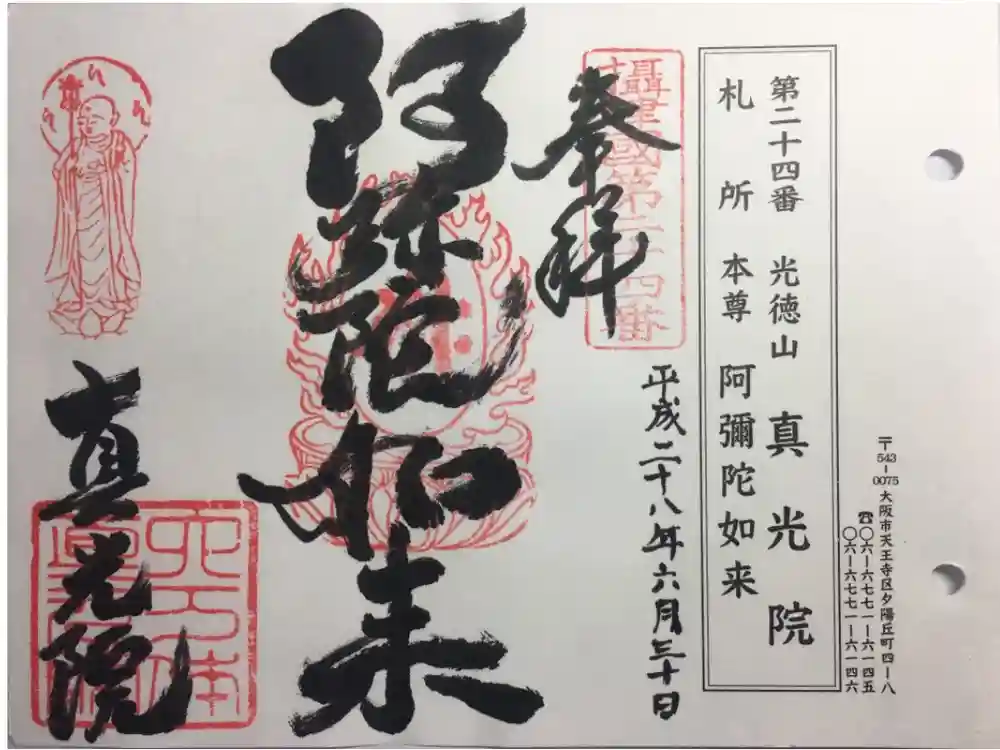 〒543-0075 大阪市天王寺区夕陽丘町四ー八
☎〇六ー六七七一ー六一四五
〇六ー六七七一ー六一四六
第二十四番 光徳山 真光院
札所本尊 阿彌陀如来
攝津國第二十四番
奉拝
平成二十八年六月三十日
阿弥陀如来
真光院